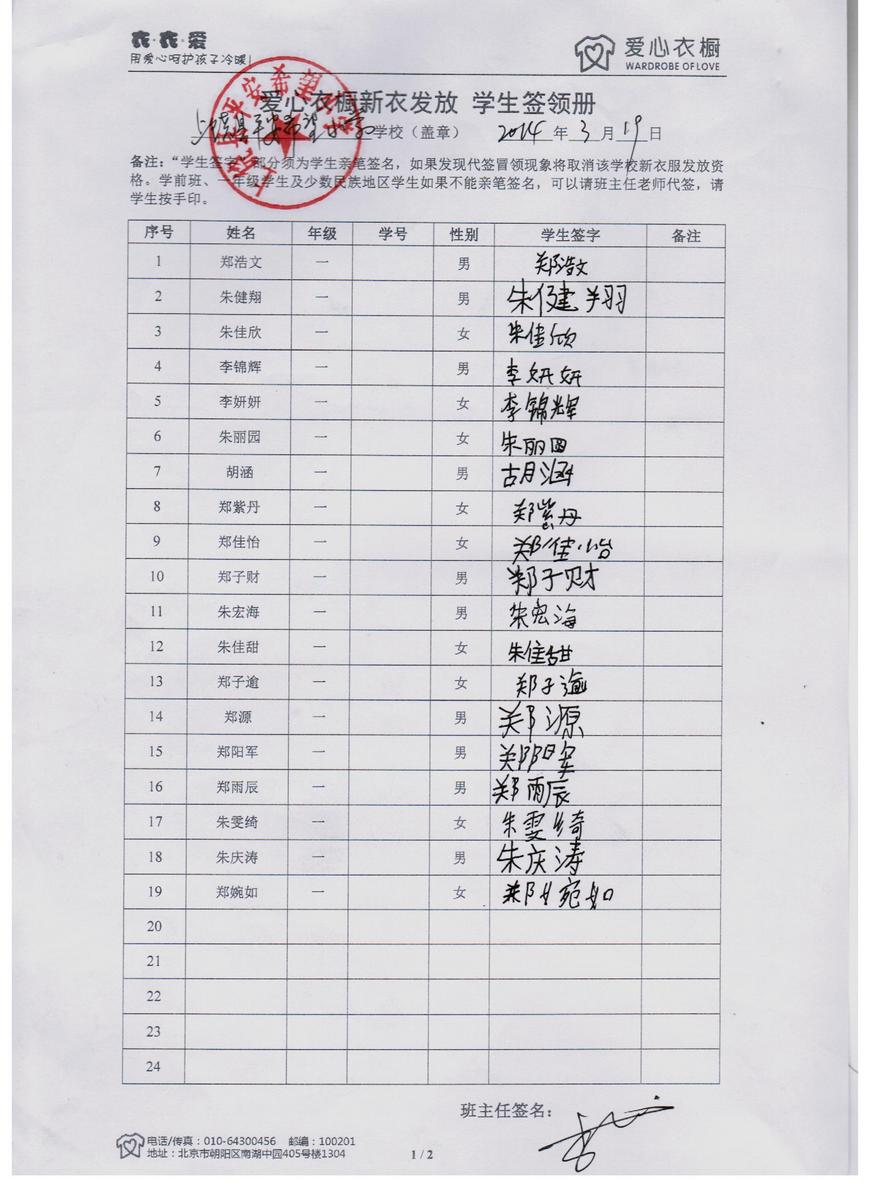 衣·衣·爱
用爱心呵护孩子冷暖!
爱心衣橱
WARDROBE OF LOVE
爱心衣橱新衣发放 学生签领册
上饶县平安希望小学 学校（盖章） 2014 年 3 月 19 日
备注：“学生签字”部分须为学生亲笔签名，如果发现代签冒领现象将取消该学校新衣服发放资
格。学前班、一年级学生及少数民族地区学生如果不能亲笔签名，可以请班主任老师代签，请
学生按手印。
序号 姓名 年级 学号 性别 学生签字 备注
1 郑浩文 一 男 郑浩文
2 朱健翔 一 男 朱健翔
3 朱佳欣 一 女 朱佳欣
4 李锦辉 一 男 李妍妍
5 李妍妍 一 女 李锦辉
6 朱丽园 一 女 朱丽园
7 胡涵 一 男 胡涵
8 郑紫丹 一 女 郑紫丹
9 郑佳怡 一 女 郑佳怡
10 郑子财 一 男 郑子财
11 朱宏海 一 男 朱宏海
12 朱佳甜 一 女 朱佳甜
13 郑子逾 一 女 郑子逾
14 郑源 一 男 郑源
15 郑阳军 一 男 郑阳军
16 郑雨辰 一 男 郑雨辰
17 朱雯绮 一 女 朱雯绮
18 朱庆涛 一 男 朱庆涛
19 郑婉如 一 女 郑婉如
20
21
22
23
24
班主任签名：
电话/传真：010-64300456 邮编：100201
地址：北京市朝阳区南湖中园405号楼1304
1 / 2